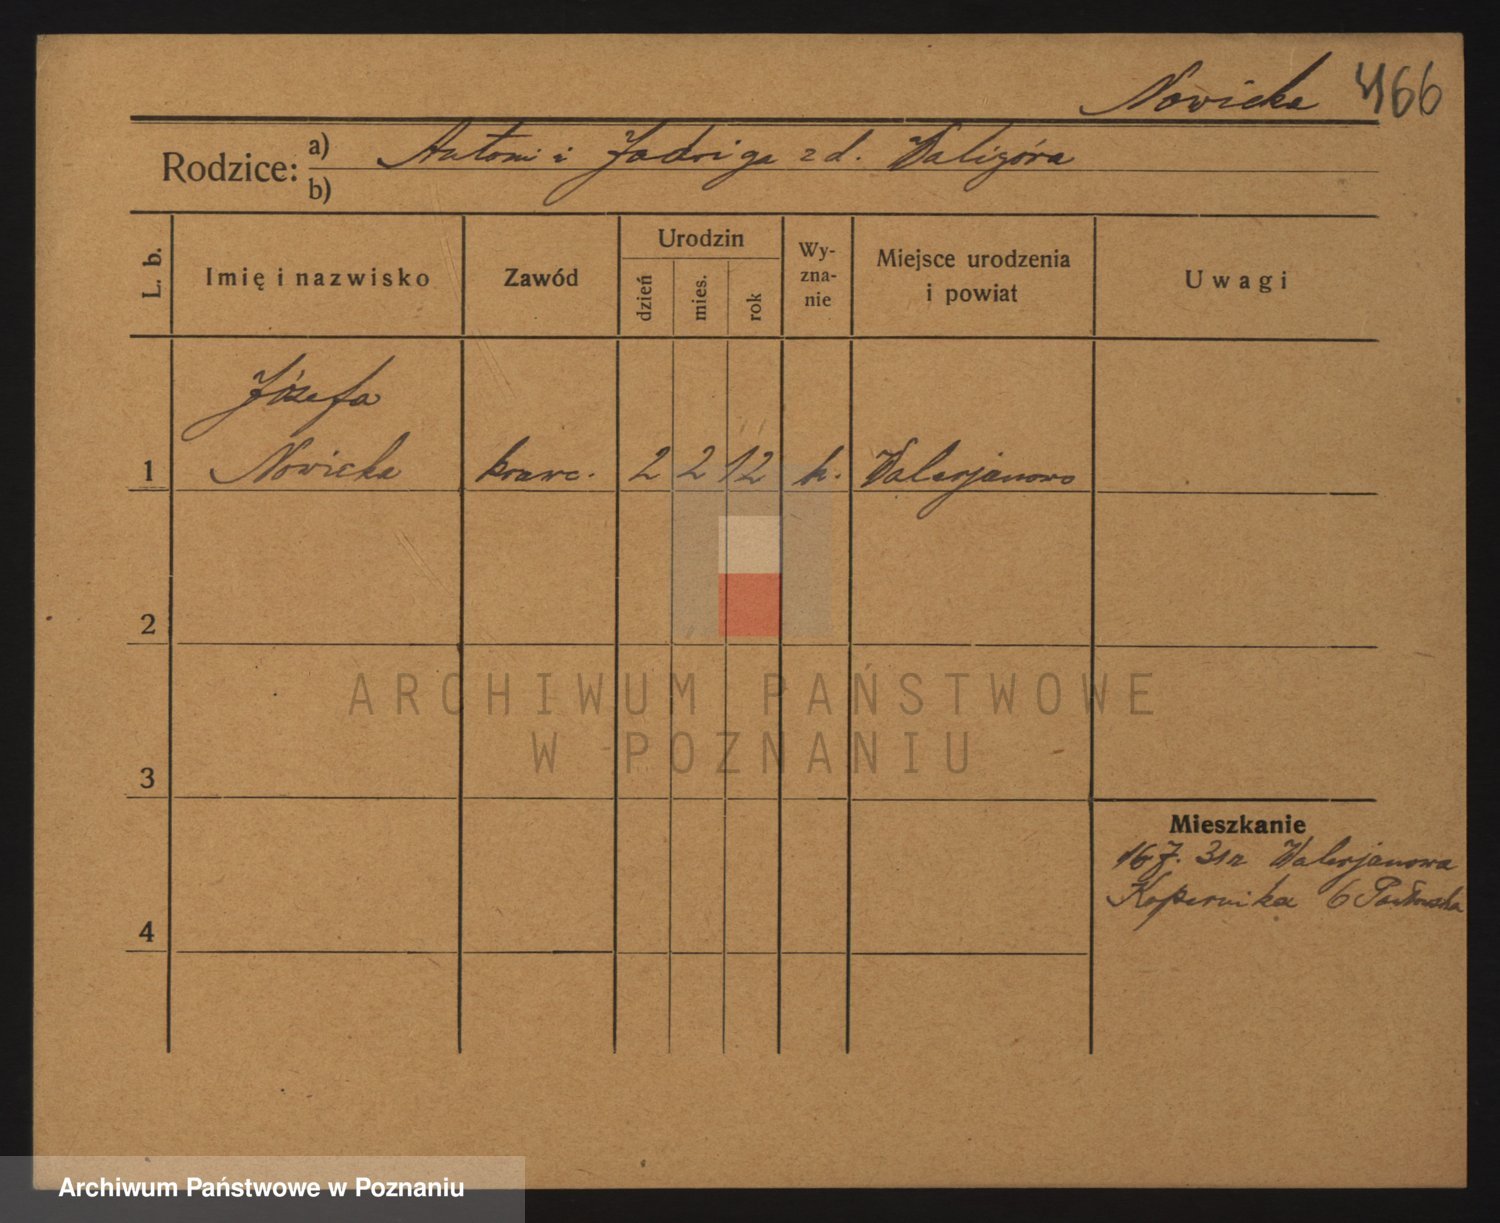 Nowicka 466
Rodzice: a) Antoni i Jadwiga z d. Waligóra
b)
L. b.
Imię i nazwisko
Zawód
Urodzin
dzień
mies.
rok
Wy-
zna-
nie
Miejsce urodzenia
i powiat
Uwagi
Józefa
1 Nowicka krawc. 2 2 12 k. Walerjanowo
2
3
4
Mieszkanie
16.7.31 z Walerjanowa
Kopernika 6
ARCHIWUM PAŃSTWOWE
W POZNANIU
Archiwum Państwowe w Poznaniu